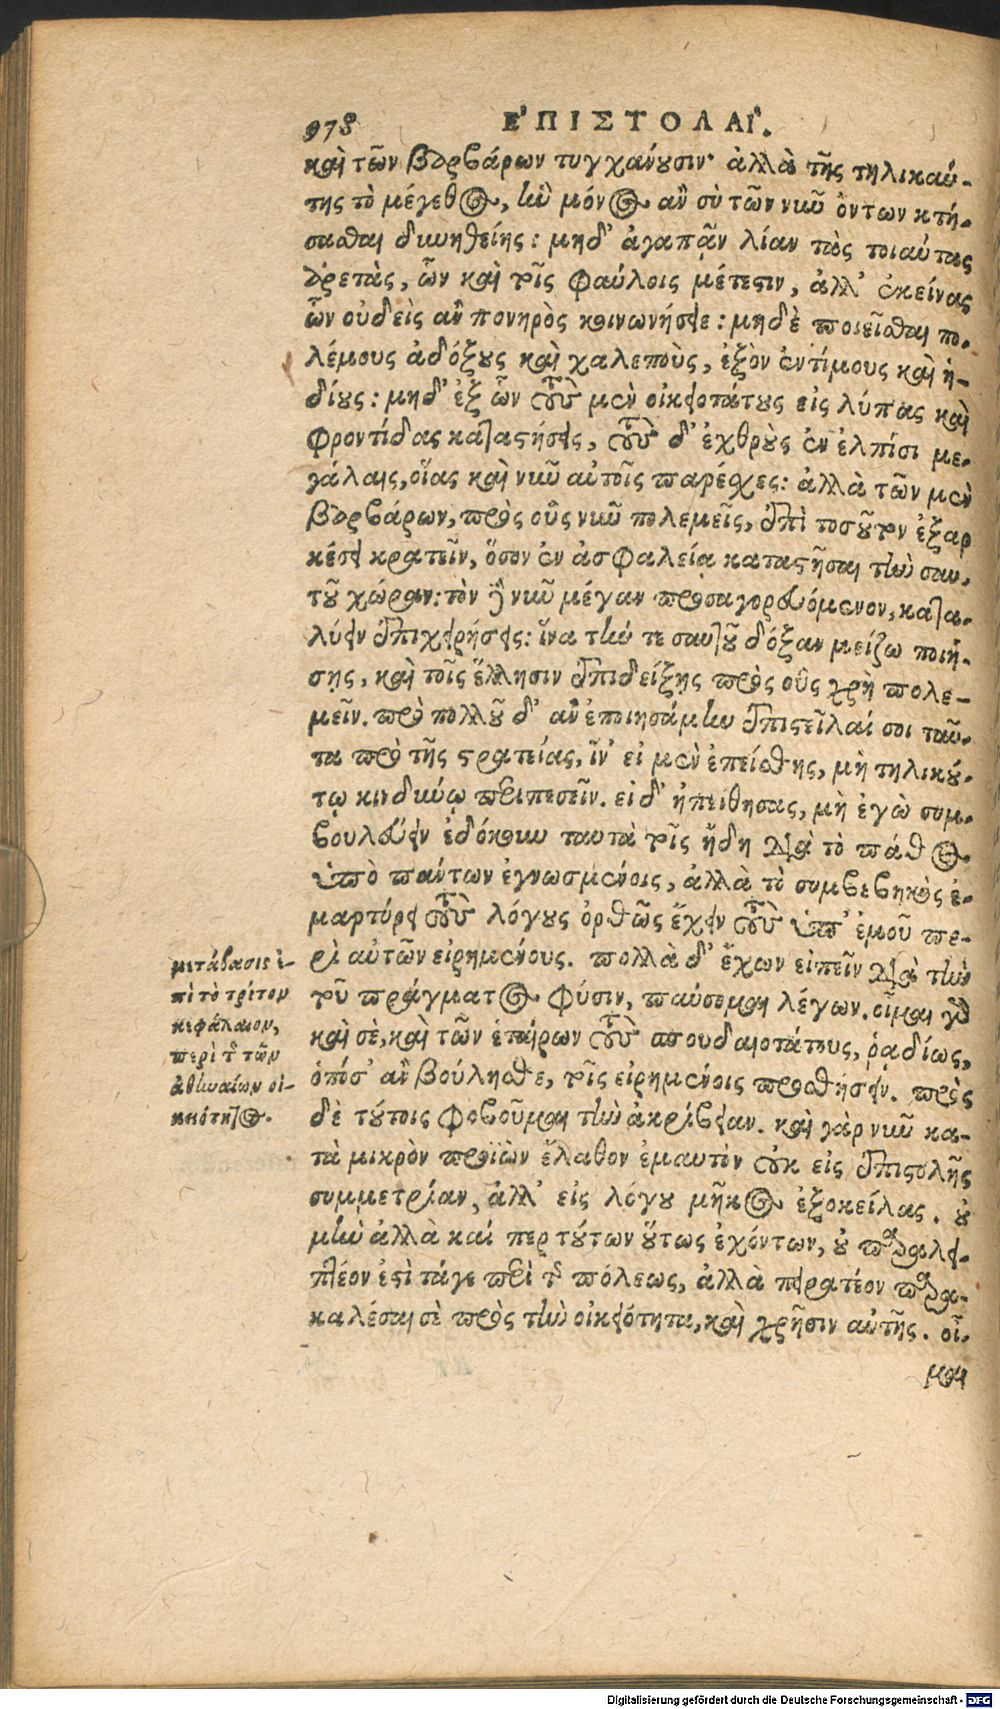 978 ἘΠΙΣΤΟΛΑΊ.
καὶ τῶν βαρβάρων τυγχάνουσιν· ἀλλὰ τῆς τηλικαύ-
της τὸ μέγεθος, ἣν μόνος ἂν σὺ τῶν νῦν ὄντων κτή-
σασθαι δυνηθείης: μηδ' ἀγαπᾷν λίαν τὰς τοιαύτας
ἀρετὰς, ὧν καὶ τοῖς φαύλοις μέτεστιν, ἀλλ' ἐκείνας
ὧν οὐδεὶς ἂν πονηρὸς κοινωνήσειε: μηδὲ ποιεῖσθαι πο-
λέμους ἀδόξους καὶ χαλεποὺς, ἐξὸν ἐντίμους καὶ ῥ-
δίους: μηδ' ἐξ ὧν τοὺς μὲν οἰκειοτάτους εἰς λύπας καὶ
φροντίδας καταστήσεις, τοὺς δ' ἐχθροὺς ἐν ἐλπίσι με-
γάλαις, οἵας καὶ νῦν αὐτοῖς παρέσχες: ἀλλὰ τῶν μὲν
βαρβάρων, πρὸς οὓς νῦν πολεμεῖς, ἐπὶ τοσοῦτον ἐξαρ
κέσει κρατεῖν, ὅσον ἐν ἀσφαλείᾳ καταστῆσαι τὴν σαυ-
τοῦ χώραν: τὸν δὲ νῦν μέγαν προσαγορευόμενον, κατα-
λύειν ἐπιχειρήσεις: ἵνα τήν τε σαυτοῦ δόξαν μείζω ποιή-
σῃς, καὶ τοῖς ἕλλησιν ἐπιδείξῃς πρὸς οὓς χρὴ πολε-
μεῖν. πρὸ πολλοῦ δ' ἂν ἐποιησάμην ἐπιστεῖλαί σοι ταῦ-
τα πρὸ τῆς στρατείας, ἵν' εἰ μὲν ἐπείσθης, μὴ τηλικού-
τῳ κινδύνῳ περιπεσεῖν. εἰ δ' ἠπείθησας, μὴ ἐγὼ συμ-
βουλεύειν ἐδόκουν ταυτὰ τοῖς ἤδη διὰ τὸ πάθος
ὑπὸ πάντων ἐγνωσμένοις, ἀλλὰ τὸ συμβεβηκὸς ἐ-
μαρτύρει τοὺς λόγους ὀρθῶς ἔχειν τοὺς ὑπ' ἐμοῦ πε-
ρὶ αὐτῶν εἰρημένους. πολλὰ δ' ἔχων εἰπεῖν διὰ τὴν
τοῦ πράγματος φύσιν, παύσομαι λέγων. οἶμαι γὰρ
καὶ σὲ, καὶ τῶν ἑταίρων τοὺς σπουδαιοτάτους, ῥᾳδίως,
ὁπόσ' ἂν βούλησθε, τοῖς εἰρημένοις προσθήσειν. πρὸς
δὲ τούτοις φοβοῦμαι τὴν ἀκρίβειαν. καὶ γὰρ νῦν κα-
τὰ μικρὸν προϊὼν ἔλαθον ἐμαυτὸν οὐκ εἰς ἐπιστολῆς
συμμετρίαν, ἀλλ' εἰς λόγου μῆκος ἐξοκείλας. οὐ
μὴν ἀλλὰ καί περ τούτων οὕτως ἐχόντων, οὐ παραλει-
πτέον ἐστὶ τάγε περὶ τῆς πόλεως, ἀλλὰ πειρατέον παρα-
καλέσαι σὲ πρὸς τὴν οἰκειότητα, καὶ χρῆσιν αὐτῆς. οἶ-
μαι
μετάβασις ἐ-
πὶ τὸ τρίτον
κεφάλαιον,
περὶ τῆς τῶν
ἀθηναίων οἰ-
κειότητος.
Digitalisierung gefördert durch die Deutsche Forschungsgemeinschaft - DFG